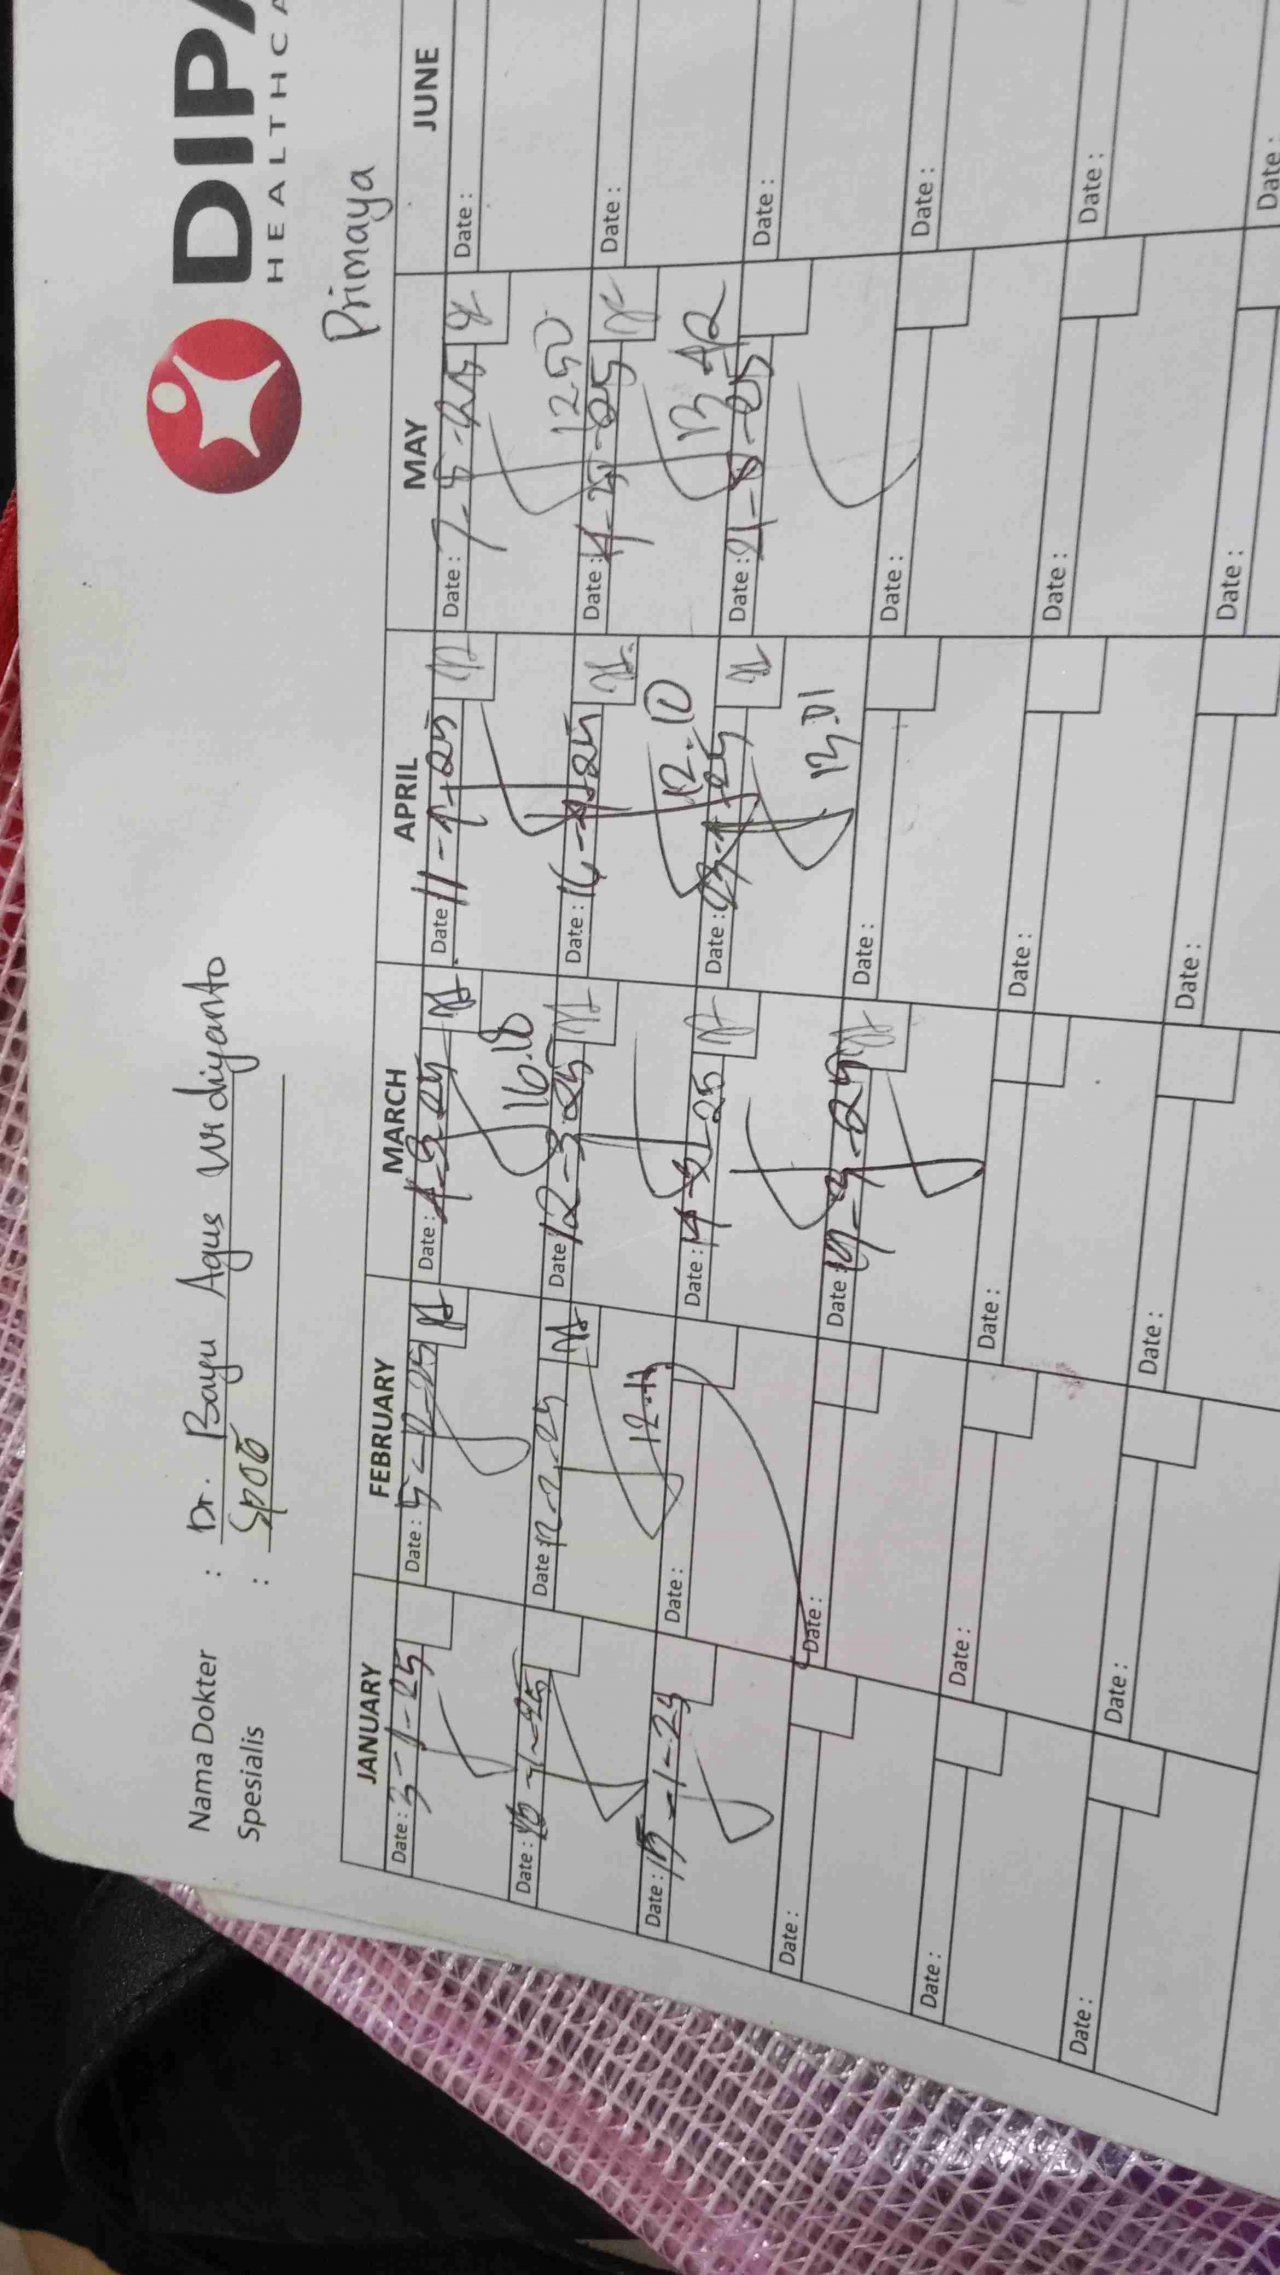 DIPA
HEALTHCA
Primaya
Nama Dokter : Dr. Bayu Agus Widiyanto
Spesialis : SpOG
JANUARY FEBRUARY MARCH APRIL MAY JUNE
Date : 3-1-25 Date : 5-2-25 Date : 4-3-25 Date : 11-4-25 Date : 7-5-25 Date :
16.18 12.50
Date : -1-25 Date : 12-2-25 Date : 12-3-25 Date : 16-4-25 Date : 14-5-25 Date :
12.10 13.42
Date : 15-1-25 Date : Date : 14-3-25 Date : 23-4-25 Date : 21-5-25 Date :
13.01
Date : Date : Date : 19-3-25 Date : Date : Date :
Date : Date : Date : Date : Date : Date :
Date : Date : Date : Date : Date : Date :